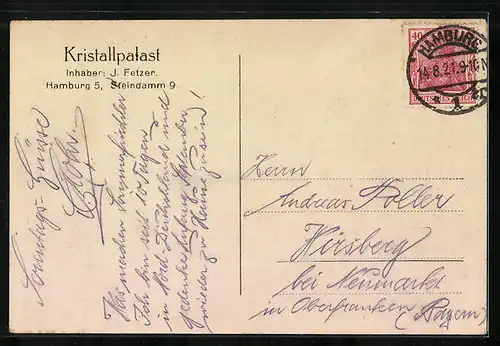 Kristallpalast
Inhaber: J. Fetzer.
Hamburg 5, Steindamm 9
40
HAMBURG
14.8.21.9-10N
* 1
DEUTSCHES REICH
Was machen
Ich bin seit 10 Tagen
in Nord-Deutschland und
gedenke Anfang September
wieder zu Hause zu sein!
Sonntags-Grüsse
Herrn
Andreas Poller
Hirsberg
bei Neumarkt
in Oberfranken
(Bayern)